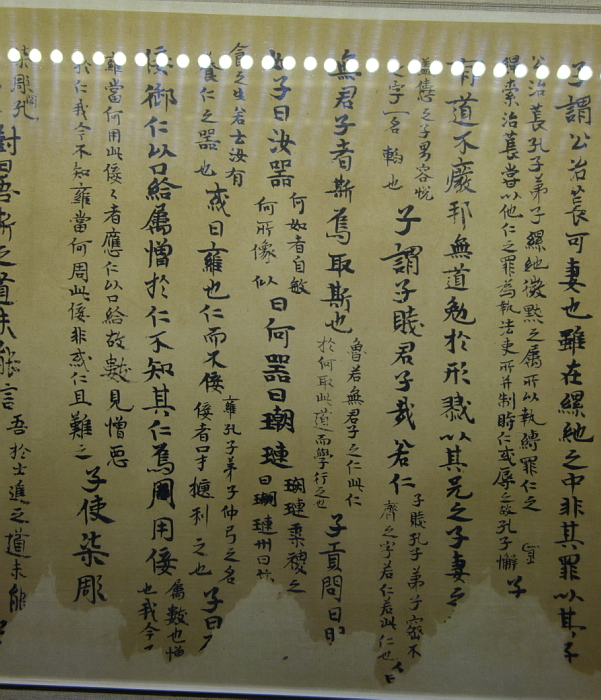 子謂公冶萇可妻也雖在縲紲之中非其罪以其子
公冶萇孔子弟子縲紲徽黙之属所以執縛罪仁之
歸索冶萇嘗以他仁之罪為執法吏所并制時仁或辱之故孔子懈
子
有道不廢邦無道勉於形戮以其兄之子妻之
之子男容悅
之字一名
也
子謂子賤君子哉若仁
子賤孔子弟子宓不
齊之字若仁者此仁也
無君子者斯焉取斯也
魯若無君子之仁此仁
於何取此道而學行之也
子貢問曰
子曰汝器
何如者自敏
何所像似
曰何器曰瑚璉
瑚璉黍稷之
曰瑚璉州曰
食之生若士汝有
養仁之器也
或曰雍也仁而不佞
雍孔子弟子仲弓之名
佞者
利之也
子曰
佞御仁以口給屬憎於仁不知其仁焉周用佞
屬數也憎
也我今
雍當何用此佞々者應仁以口給故數見憎惡
於仁我今不知雍當何周此佞非或仁且難之
子使柒彫
柒彫開孔
對曰吾斯之道未能言
吾於士進之道未能